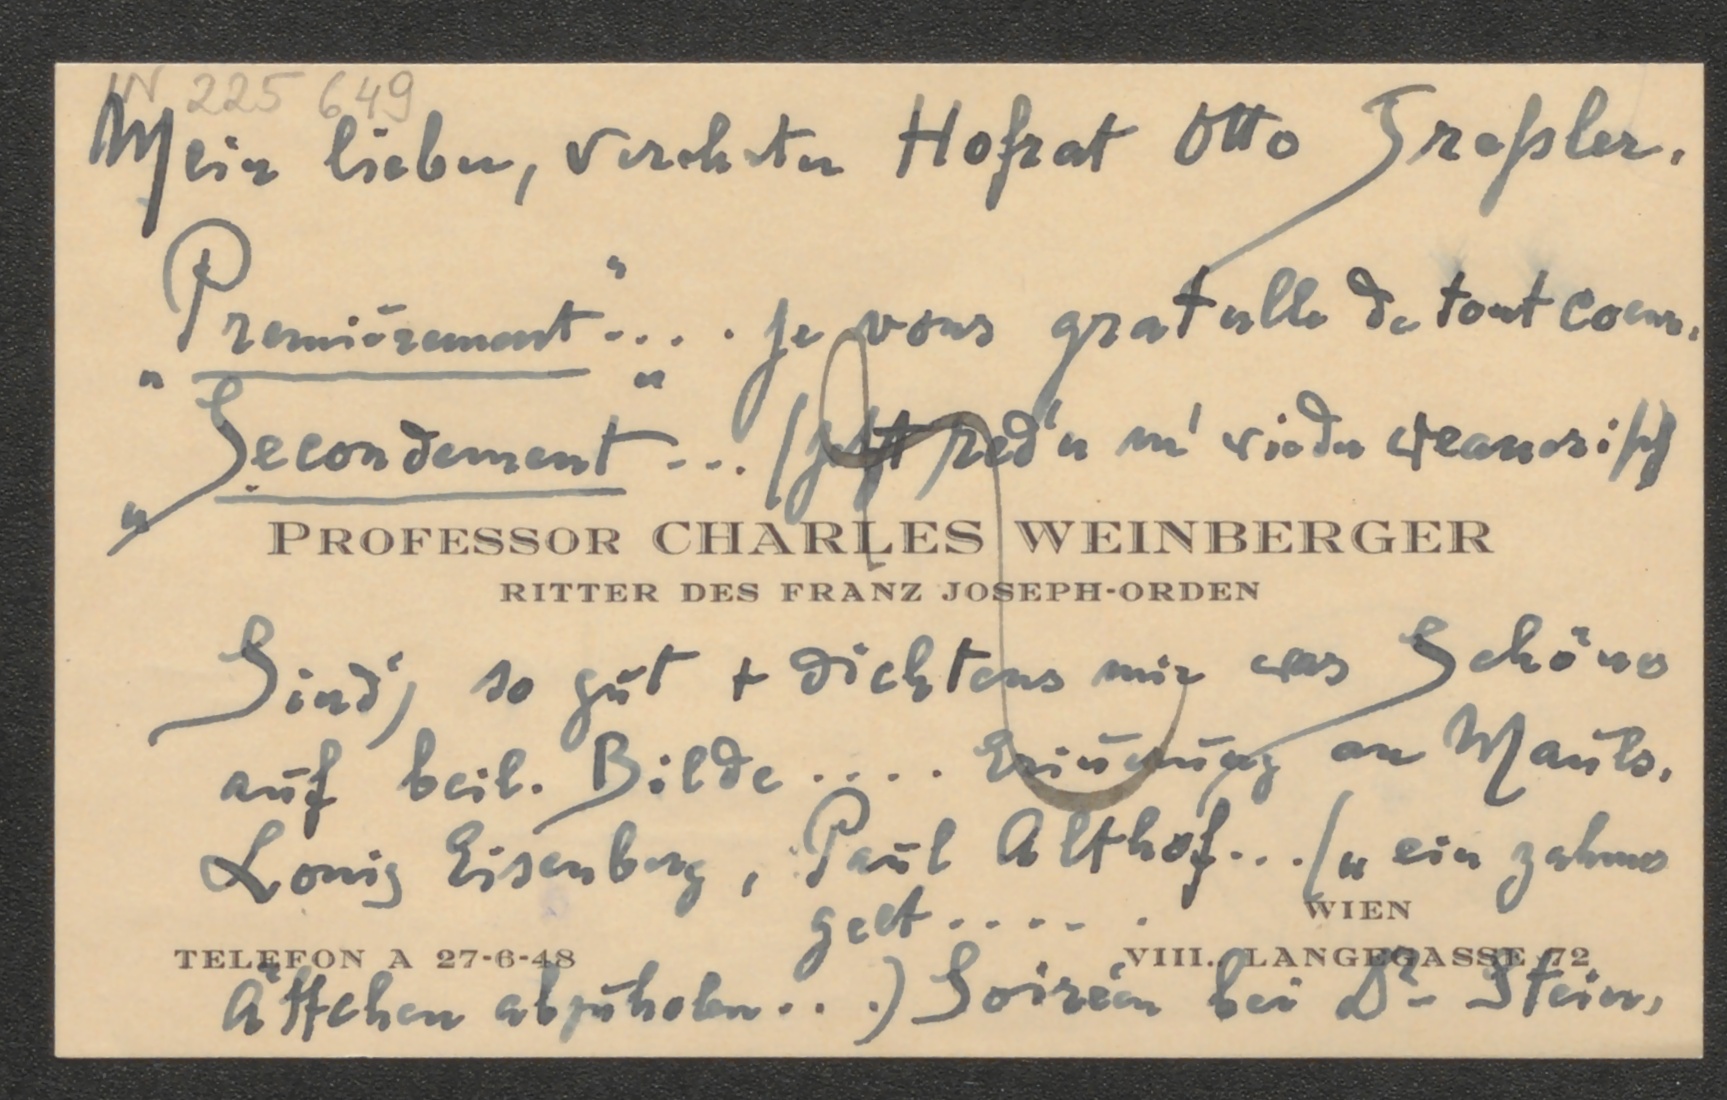 IN 225 649
Mein lieber, verehrter Hofrat Otto Treßler.
"Premièrement".... je vous gratulle de tout coeur.
"Secondement"... (jetzt red'n m' wieder weanerisch)
PROFESSOR CHARLES WEINBERGER
RITTER DES FRANZ JOSEPH-ORDEN
Sind's so gut + dichtens mir was Schönes
auf beil. Bilde.... Erinnerung an
Louis Eisenberg, Paul Althof...(u ein zahmes
gelt.....
WIEN
TELEFON A 27-6-48 VIII., LANGEGASSE 72
Äffchen abzuholen...) Soiréen bei Dr. Stein,